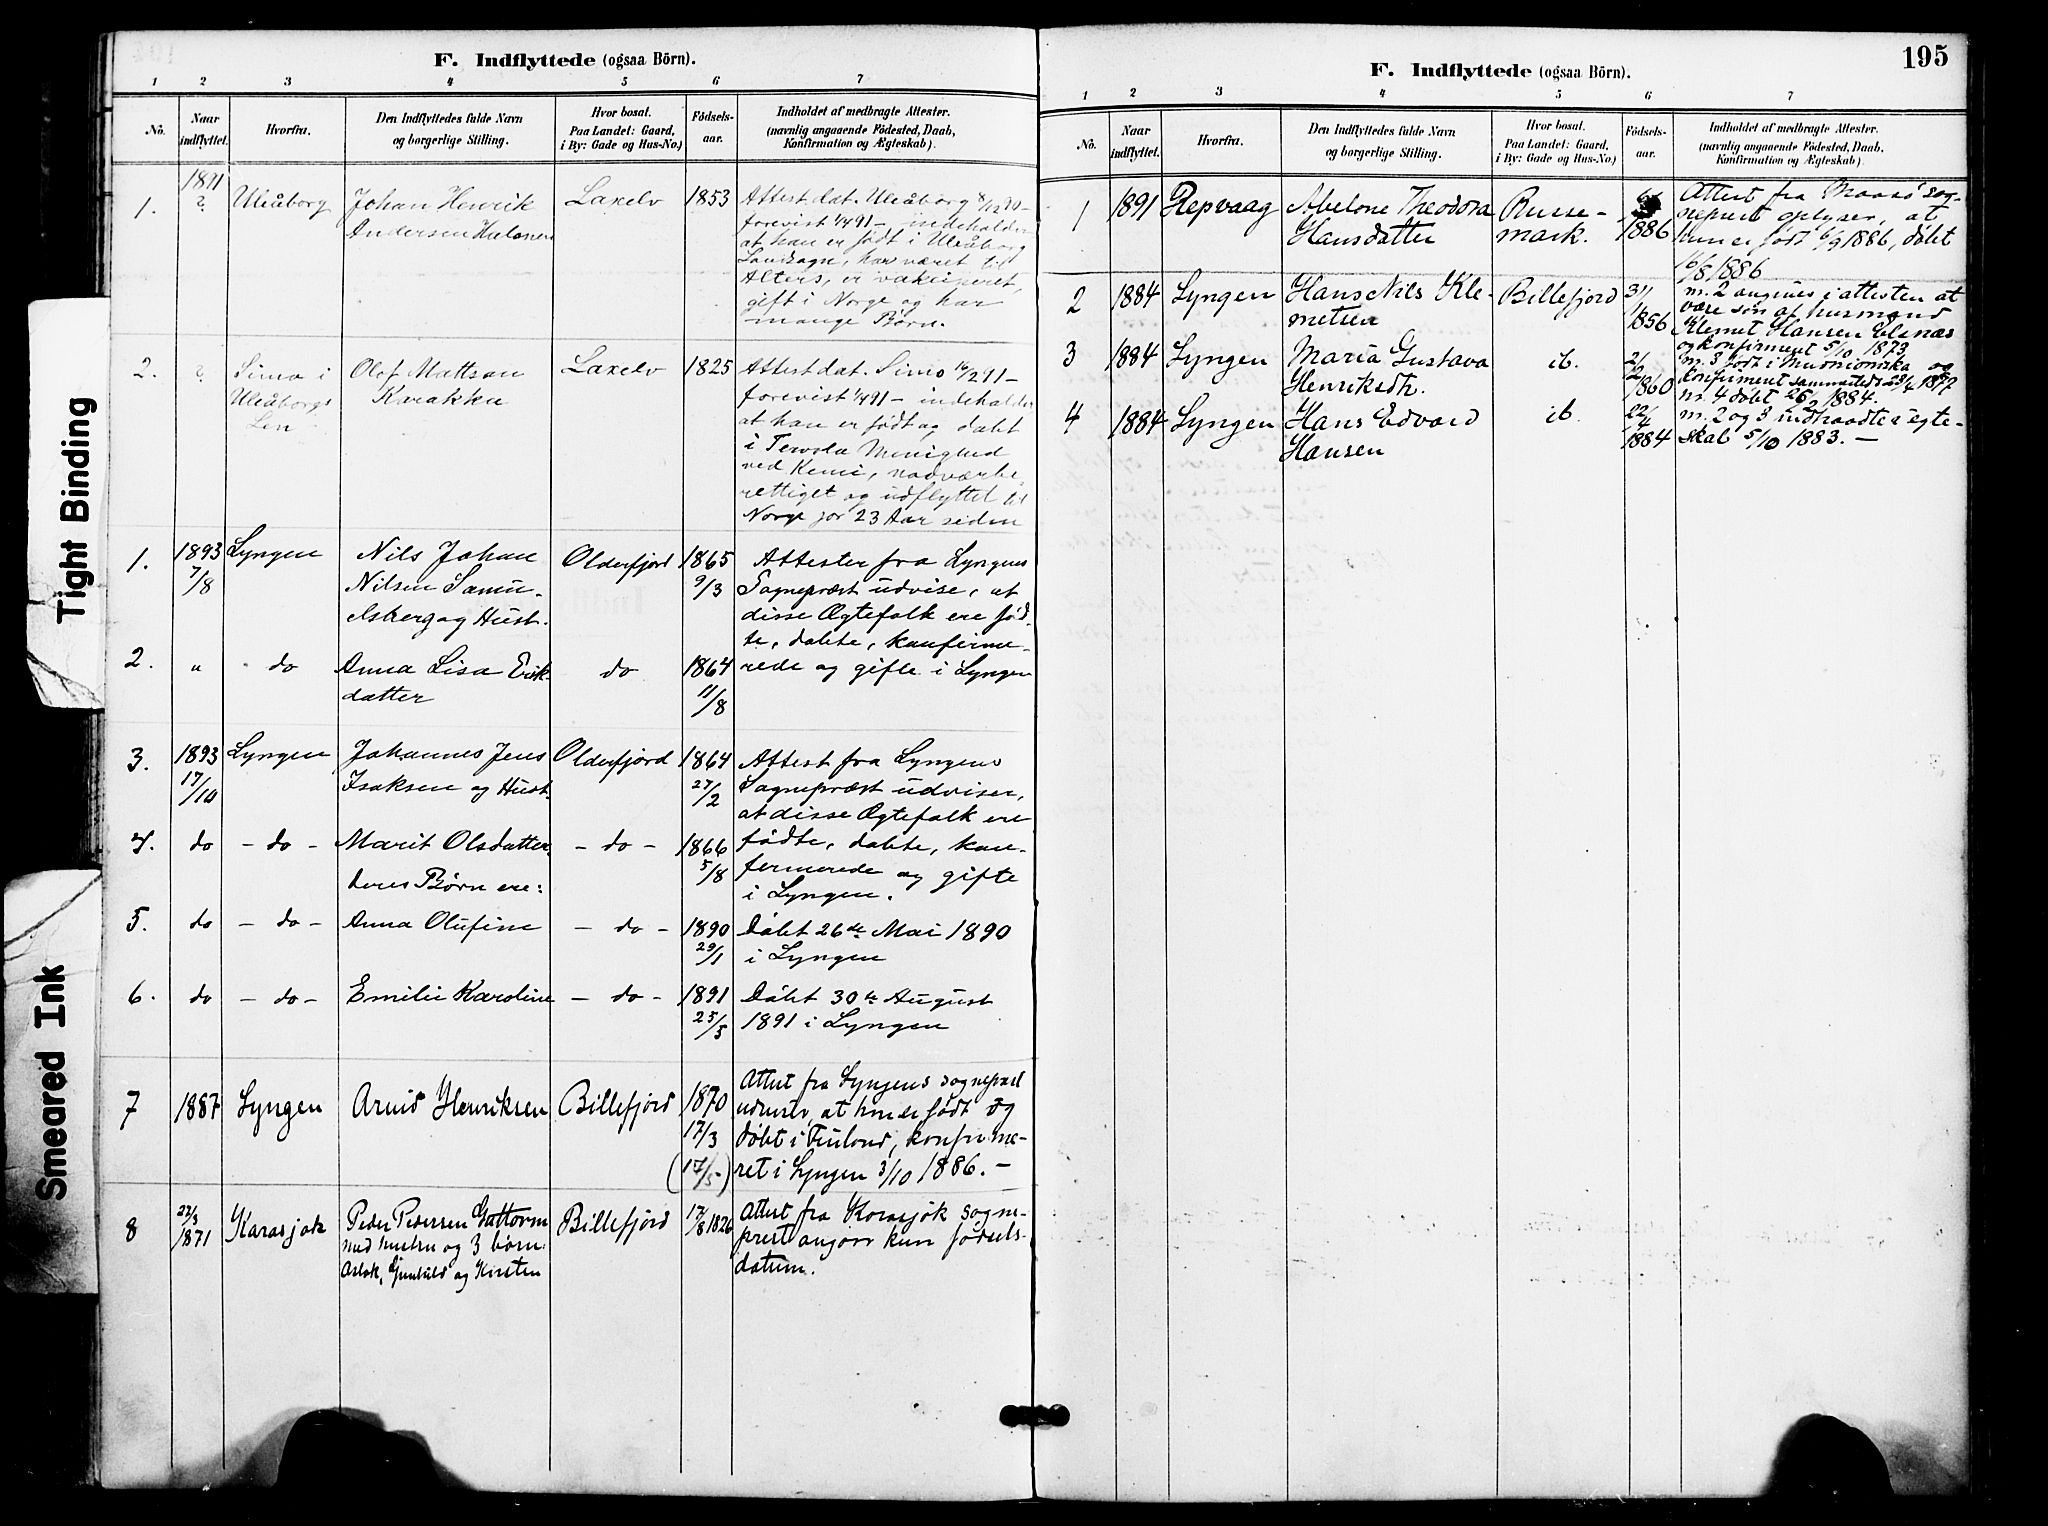 Tight Binding
Smeared Ink
F. Indflyttede (ogsaa Börn).
1 2 3 4 5 6 7
No.
Naar indflyttet.
Hvorfra.
Den Indflyttedes fulde Navn
og borgerlige Stilling.
Hvor bosat.
Paa Landet: Gaard,
i By: Gade og Hus-No.)
Fødsels-
aar.
Indholdet af medbragte Attester.
(navnlig angaaende Fødested, Daab,
Konfirmation og Ægteskab).
1. 1891 ? Uleåborg Johan Henrik Laxelv 1853 Attest dat. Uleåborg 8/12 90 –
Andersen
forevist 1/4 91 – indeholder
at han er født i Uleåborg
Landsogn, har været til
Alters, er vakcineret,
gift i Norge og har
mange Børn.
2. ? Simo i Olof Mattsan Laxelv 1825 Attest dat. Simo 16/2 91 –
Uleåborgs Karakka forevist 1/4 91 – indeholder
Len at han er født og døbt
i Tervola Menighed
ved Kemi, nadverbe
rettiget og udflyttet til
Norge for 23 Aar siden
1. 1893 Lyngen Nils Johan Olderfjord 1865 Attester fra Lyngens
7/8 Nilsen Samu- 9/3 Sognepræst udvise, at
elsberg og Hust. disse Ægtefolk ere fød-
te, døbte, konfirme-
2. " do Anna Lisa Erik- do 1864 rede og gifte i Lyngen
datter 11/8
3. 1893 Lyngen Johannes Jens Olderfjord 1864 Attest fra Lyngens
17/10 Isaksen og Hust. 27/2 Sognepræst udviser,
at disse Ægtefolk ere
4. do – do – Marit Olsdatter – do – 1866 fødte, døbte, kon-
5/8 firmerede og gifte
deres Børn ere: i Lyngen.
5. do – do – Anna Olufine – do – 1890 Døbt 26de Mai 1890
29/1 i Lyngen
6. do – do – Emilie Karoline – do – 1891 Døbt 30te August
25/5 1891 i Lyngen
7 1887 Lyngen Arvid Henriksen Billefjord 1870 Attest fra Lyngens sogneprest
17/3 udviser, at han er født og
døbt i Finland, konfirme-
(17/5) ret i Lyngen 3/10 1886. –
8 22/3 1871 Karasjok Peder Pedersen Billefjord 17/8 1826 Attest fra Karasjok sogne-
med hustru og 3 børn: prest angaar kun fødsels-
Aslak, Gunhild og Kirsten datum.
195
F. Indflyttede (ogsaa Börn).
1 2 3 4 5 6 7
No.
Naar indflyttet.
Hvorfra.
Den Indflyttedes fulde Navn
og borgerlige Stilling.
Hvor bosat.
Paa Landet: Gaard,
i By: Gade og Hus-No.)
Fødsels-
aar.
Indholdet af medbragte Attester.
(navnlig angaaende Fødested, Daab,
Konfirmation og Ægteskab).
1 1891 Repvaag Abelone Theodora Russe- 1886 Attest fra Maasø sog-
Hansdatter mark. neprest oplyser, at
hun er født 6/9 1886, døbt
16/8 1886
2 1884 Lyngen Hans Nils Kle- Billefjord 31/1 1856 nr. 2 angives i attesten at
metsen være søn af husmand
Klemet Hansen
og konfirmeret 5/10 1873
3 1884 Lyngen Maria Gustava ib. 21/2 1860 nr. 3 født i Muonioniska og
Henriksdtr. konfirmeret sammesteds 1877
nr. 4 døbt 1884.
4 1884 Lyngen Hans Edvard ib 22/4 1884 nr. 2 og 3 indtraadte i egte-
Hansen skab 5/10 1883. –